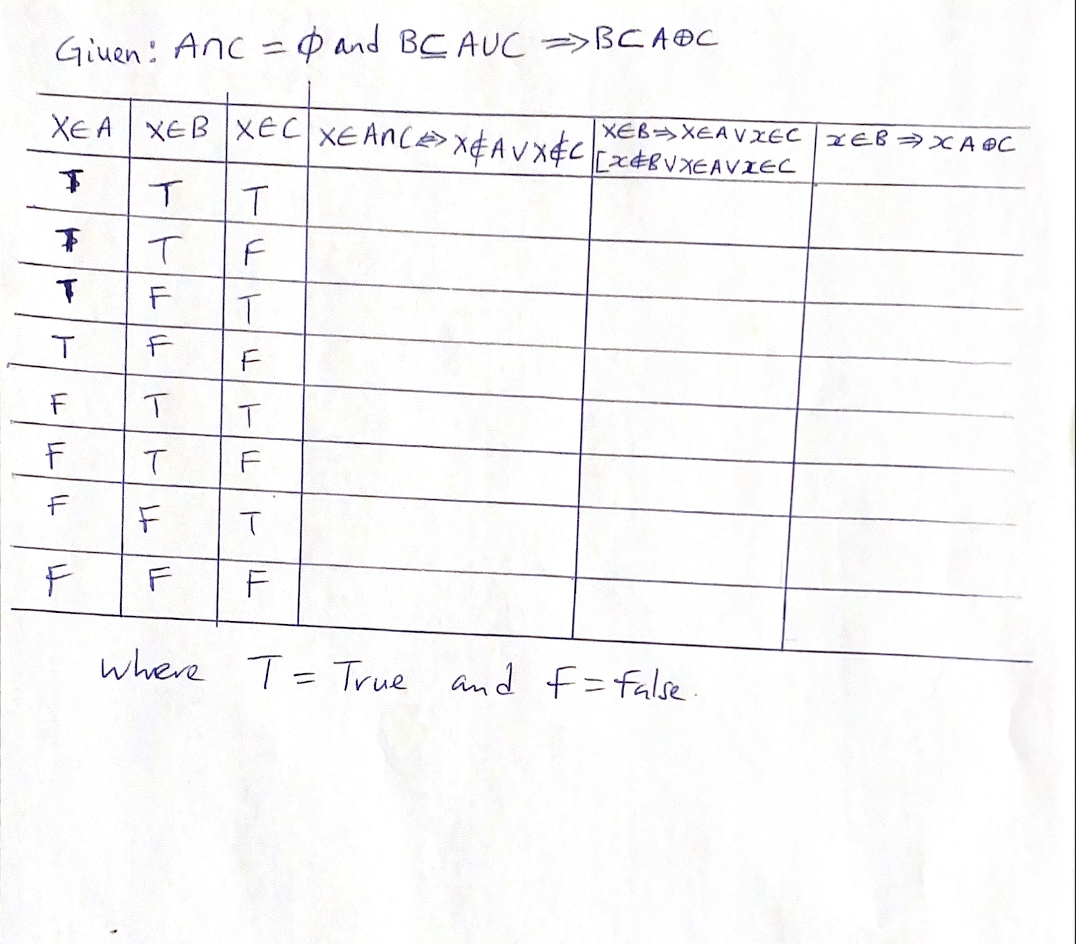 Given: A∩C = ϕ and B⊆ A∪C ⇒ B⊂ A⊕C
X∈A X∈B X∈C X∈A∩C⇔X∉A∨X∉C X∈B⇒X∈A∨x∈C x∈B ⇒ x A⊕C
[x∉B∨X∈A∨x∈C
T T T
T T F
T F T
T F F
F T T
F T F
F F T
F F F
where T = True and F = false.